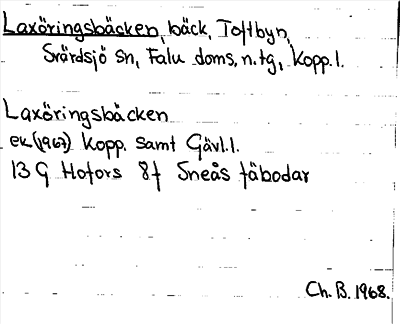 Laxöringsbäcken, bäck, Toftbyn,
Svärdsjö sn, Falu doms. n. tg, Kopp. l.
Laxöringsbäcken
ek (1967) Kopp. samt Gävl. l.
13 G Hofors 8f Sneås fäbodar
Ch. B. 1968.